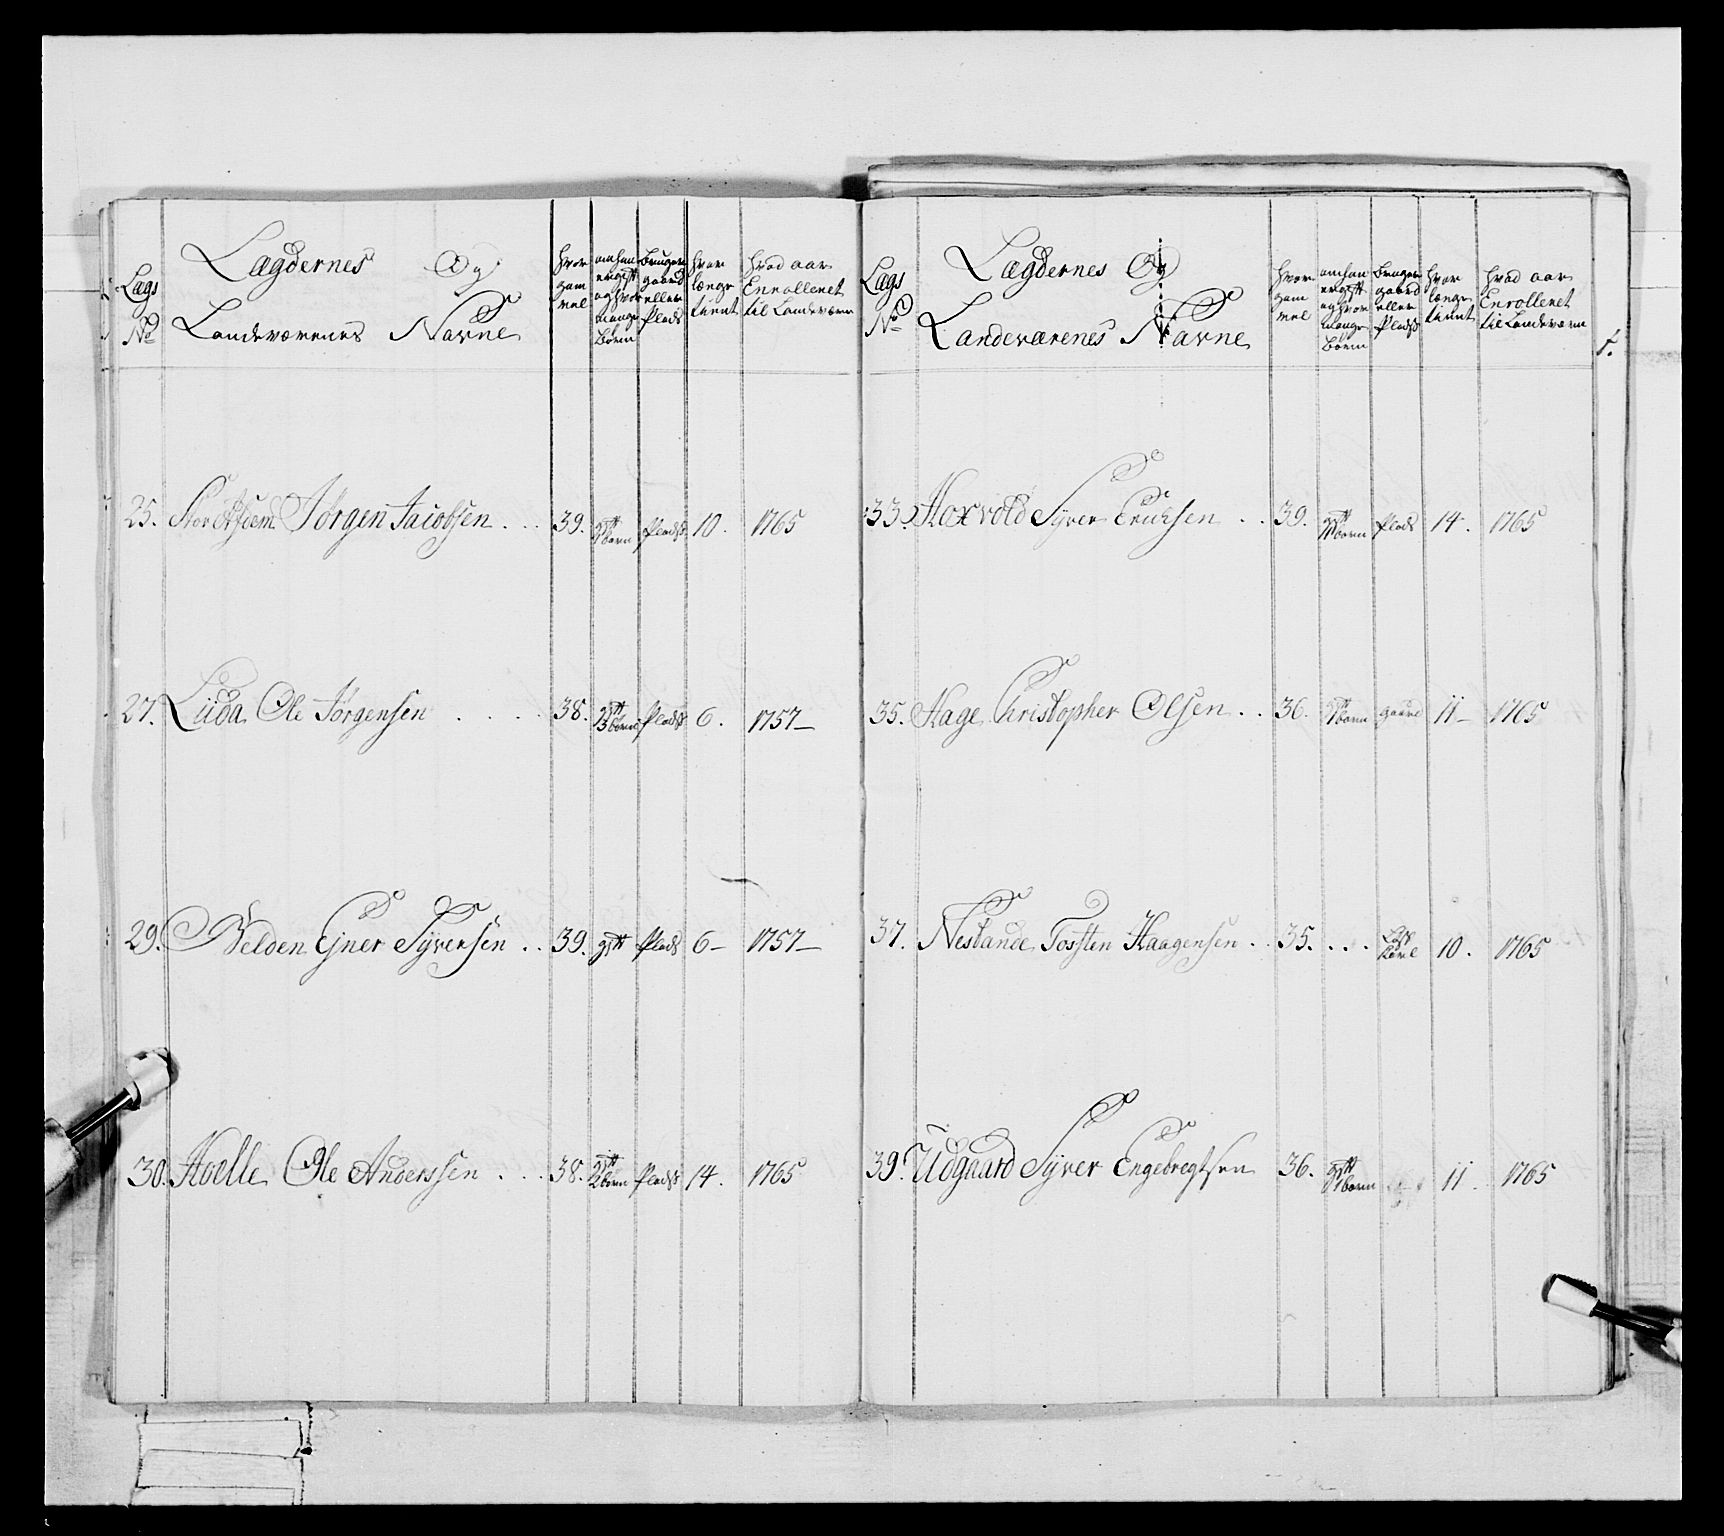 Lægs
No
Lægdernes Og
Landeværenes Navne
hvor
gam
mel
om han
er gift
og hvor
mange
Børn
Bruger
gaard
eller
Plads
hvor
længe
tient
hvad aar
Enrolleret
til Landeværn
25. Jørgen Jacobsen . . . 39. gift børn Plads 10. 1765
27. Luda Ole Jørgensen . . . . 38. gift 3 børn Plads 6. 1757 —
29. Velden Ejner Syversen . . 39. gift Plads 6 — 1757 —
30. Hoelle Ole Anderssen . . . 38. gift 2 børn Plads 14. 1765
Lægs
No
Lægdernes Og
Landeværenes Navne
hvor
gam
mel
om han
er gift
og hvor
mange
Børn
Bruger
gaard
eller
Plads
hvor
længe
tient
hvad aar
Enrolleret
til Landeværn
33. Hoxvold Syver Ericksen . . 39. gift børn Plads 14. 1765
35. Hage Christopher Olsen . . 36. gift 1 børn gaard 11 — 1765
37. Nestande Tosten Haagensen . . 35. . . . 10. 1765
39. Udgaard Syver Engebregtsen 36. gift 1 børn 11. 1765